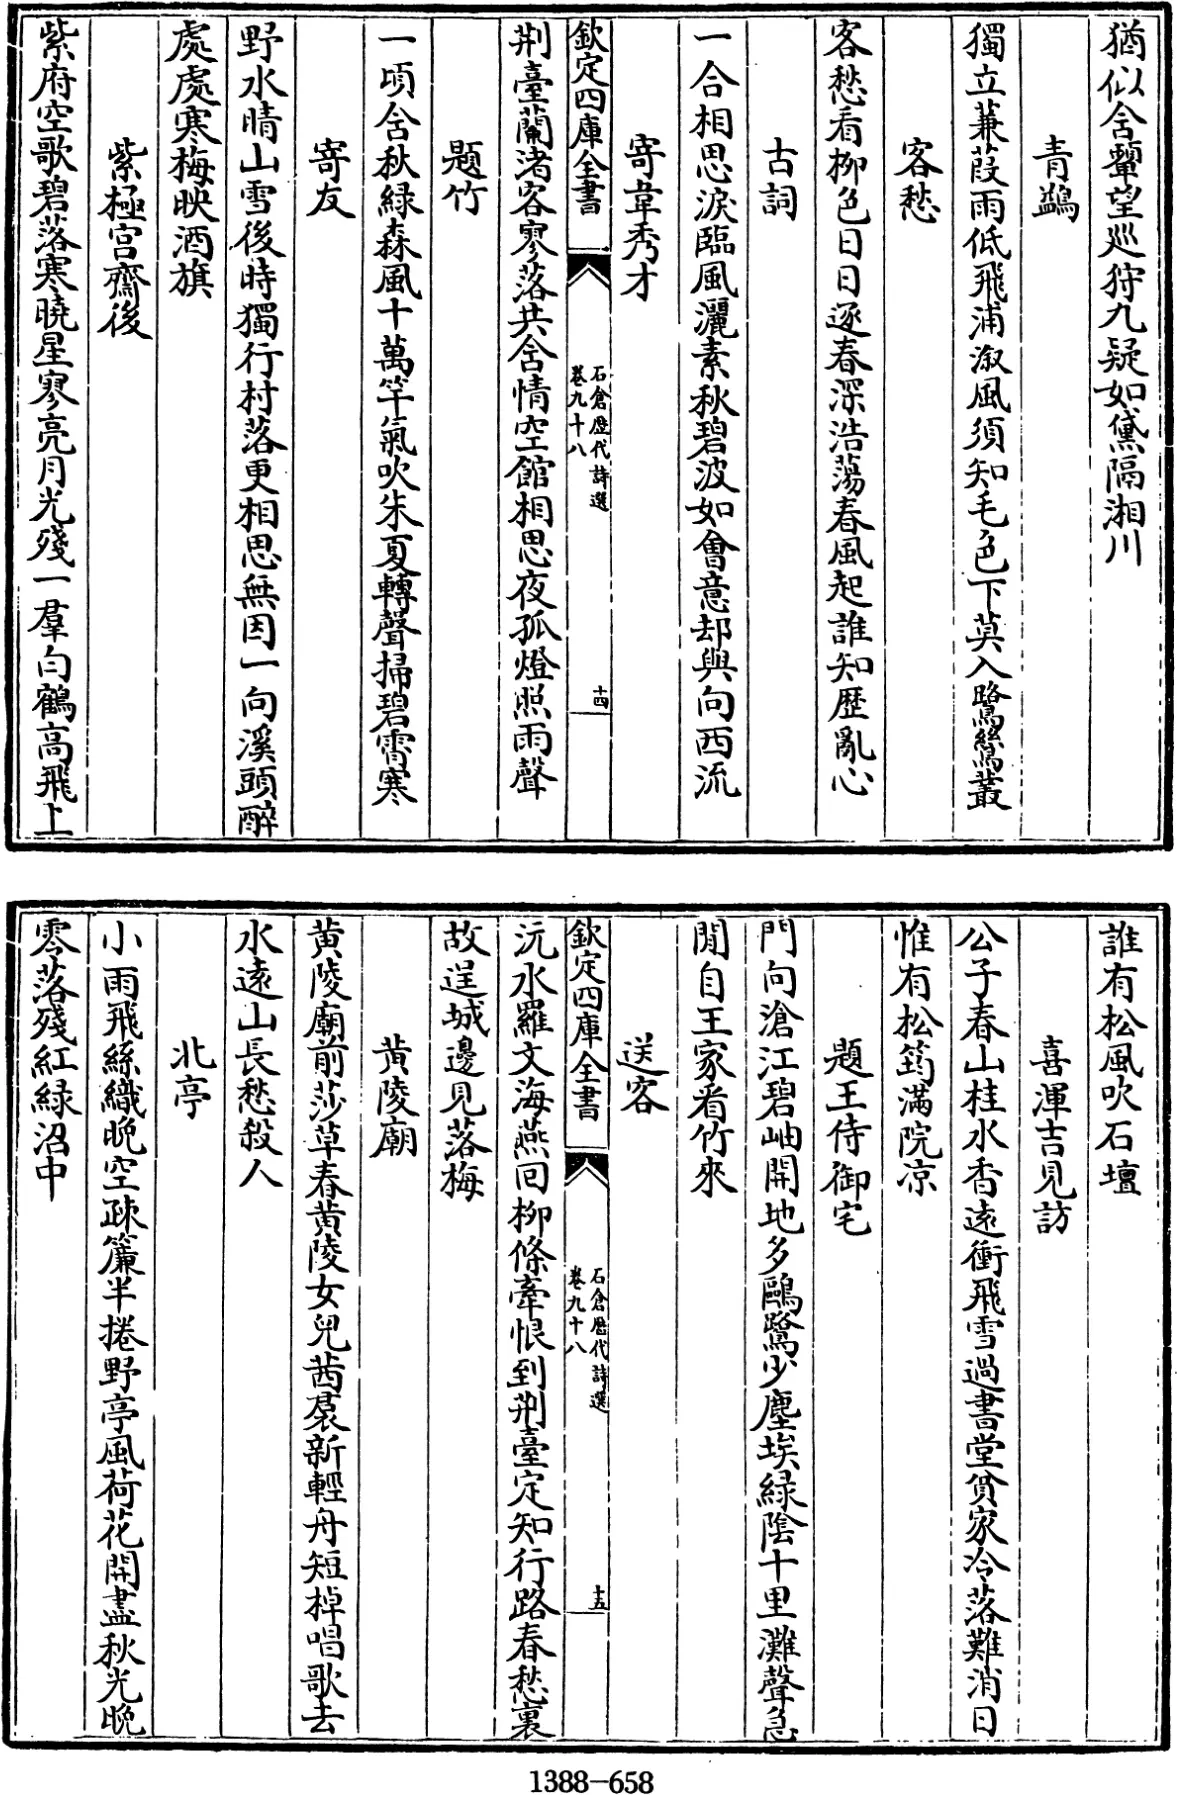 猶似含顰望巡狩九疑如黛隔湘川
青鷁
獨立蒹葭雨低飛浦溆風須知毛色下莫入鷺鷥叢
客愁
客愁看柳色日日逐春深浩蕩春風起誰知歴亂心
古詞
一合相思淚臨風灑素秋碧波如會意却與向西流
寄韋秀才
欽定四庫全書
石倉歴代詩選
卷九十八
十四
荆臺蘭渚客寥落共含情空館相思夜孤燈照雨聲
題竹
一頃含秋緑森風十萬竿氣吹朱夏轉聲掃碧霄寒
寄友
野水晴山雪後時獨行村落更相思無因一向溪頭醉
處處寒梅映酒旗
紫極宫齋後
紫府空歌碧落寒曉星寥亮月光殘一羣白鶴高飛上
誰有松風吹石壇
喜渾吉見訪
公子春山桂水香遠衝飛雪過書堂貧家冷落難消日
惟有松筠滿院凉
題王侍御宅
門向滄江碧岫開地多鷗鷺少塵埃緑陰十里灘聲急
閒自王家看竹來
送客
欽定四庫全書
石倉歴代詩選
卷九十八
十五
沅水羅文海燕囘柳條牽恨到荆臺定知行路春愁裏
故逞城邊見落梅
黄陵廟
黄陵廟前莎草春黄陵女兒茜裠新輕舟短棹唱歌去
水遠山長愁殺人
北亭
小雨飛絲織晚空疎簾半捲野亭風荷花開盡秋光晚
零落殘紅緑沼中
1388-658